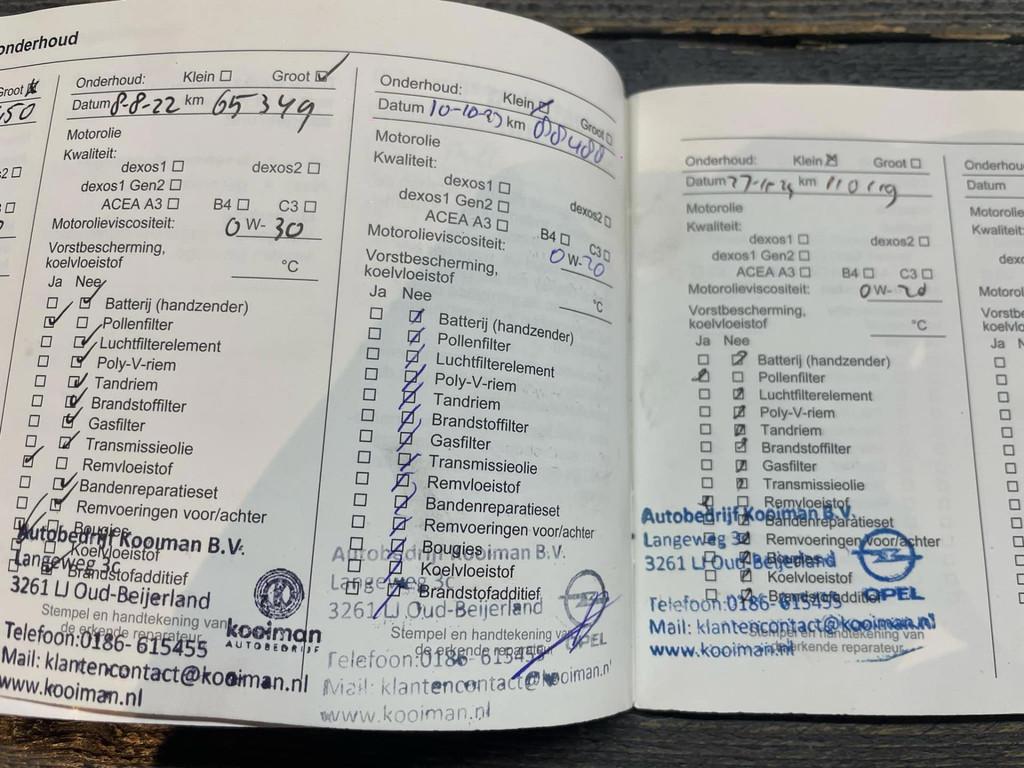 onderhoud
Groot
Onderhoud: Klein Groot
Datum 8-8-22 km 65349
Motorolie
Kwaliteit:
dexos1 dexos2
dexos1 Gen2
ACEA A3 B4 C3
Motorolieviscositeit: 0 W- 30
Vorstbescherming,
koelvloeistof °C
Ja Nee
Batterij (handzender)
Pollenfilter
Luchtfilterelement
Poly-V-riem
Tandriem
Brandstoffilter
Gasfilter
Transmissieolie
Remvloeistof
Bandenreparatieset
Remvoeringen voor/achter
Bougies
Koelvloeistof
Brandstofadditief
Autobedrijf Kooiman B.V.
Langeweg 3c
3261 LJ Oud-Beijerland
Stempel en handtekening van
de erkende reparateur
kooiman
AUTOBEDRIJF
Telefoon:0186-615455
Mail: klantencontact@kooiman.nl
www.kooiman.nl
Onderhoud: Klein Groot
Datum 10-10-23 km 88480
Motorolie
Kwaliteit:
dexos1
dexos1 Gen2 dexos2
ACEA A3 B4 C3
Motorolieviscositeit: 0 W- 20
Vorstbescherming,
koelvloeistof °C
Ja Nee
Batterij (handzender)
Pollenfilter
Luchtfilterelement
Poly-V-riem
Tandriem
Brandstoffilter
Gasfilter
Transmissieolie
Remvloeistof
Bandenreparatieset
Remvoeringen voor/achter
Bougies
Koelvloeistof
Brandstofadditief
Autobedrijf Kooiman B.V.
Langeweg 3c
3261 LJ Oud-Beijerland
OPEL
Stempel en handtekening van
de erkende reparateur
Telefoon:0186-615455
Mail: klantencontact@kooiman.nl
www.kooiman.nl
Onderhoud: Klein Groot
Datum km 110119
Motorolie
Kwaliteit:
dexos1 dexos2
dexos1 Gen2
ACEA A3 B4 C3
Motorolieviscositeit: 0 W- 20
Vorstbescherming,
koelvloeistof °C
Ja Nee
Batterij (handzender)
Pollenfilter
Luchtfilterelement
Poly-V-riem
Tandriem
Brandstoffilter
Gasfilter
Transmissieolie
Remvloeistof
Bandenreparatieset
Remvoeringen voor/achter
Bougies
Koelvloeistof
Brandstofadditief
Autobedrijf Kooiman B.V.
Langeweg 3c
3261 LJ Oud-Beijerland
OPEL
Telefoon:0186-615455
Mail: klantencontact@kooiman.nl
Stempel en handtekening van
de erkende reparateur
www.kooiman.nl
Onderhou
Datum
Motorolie
Kwaliteit:
dexo
Motorol
Vorstb
koelvlo
Ja N